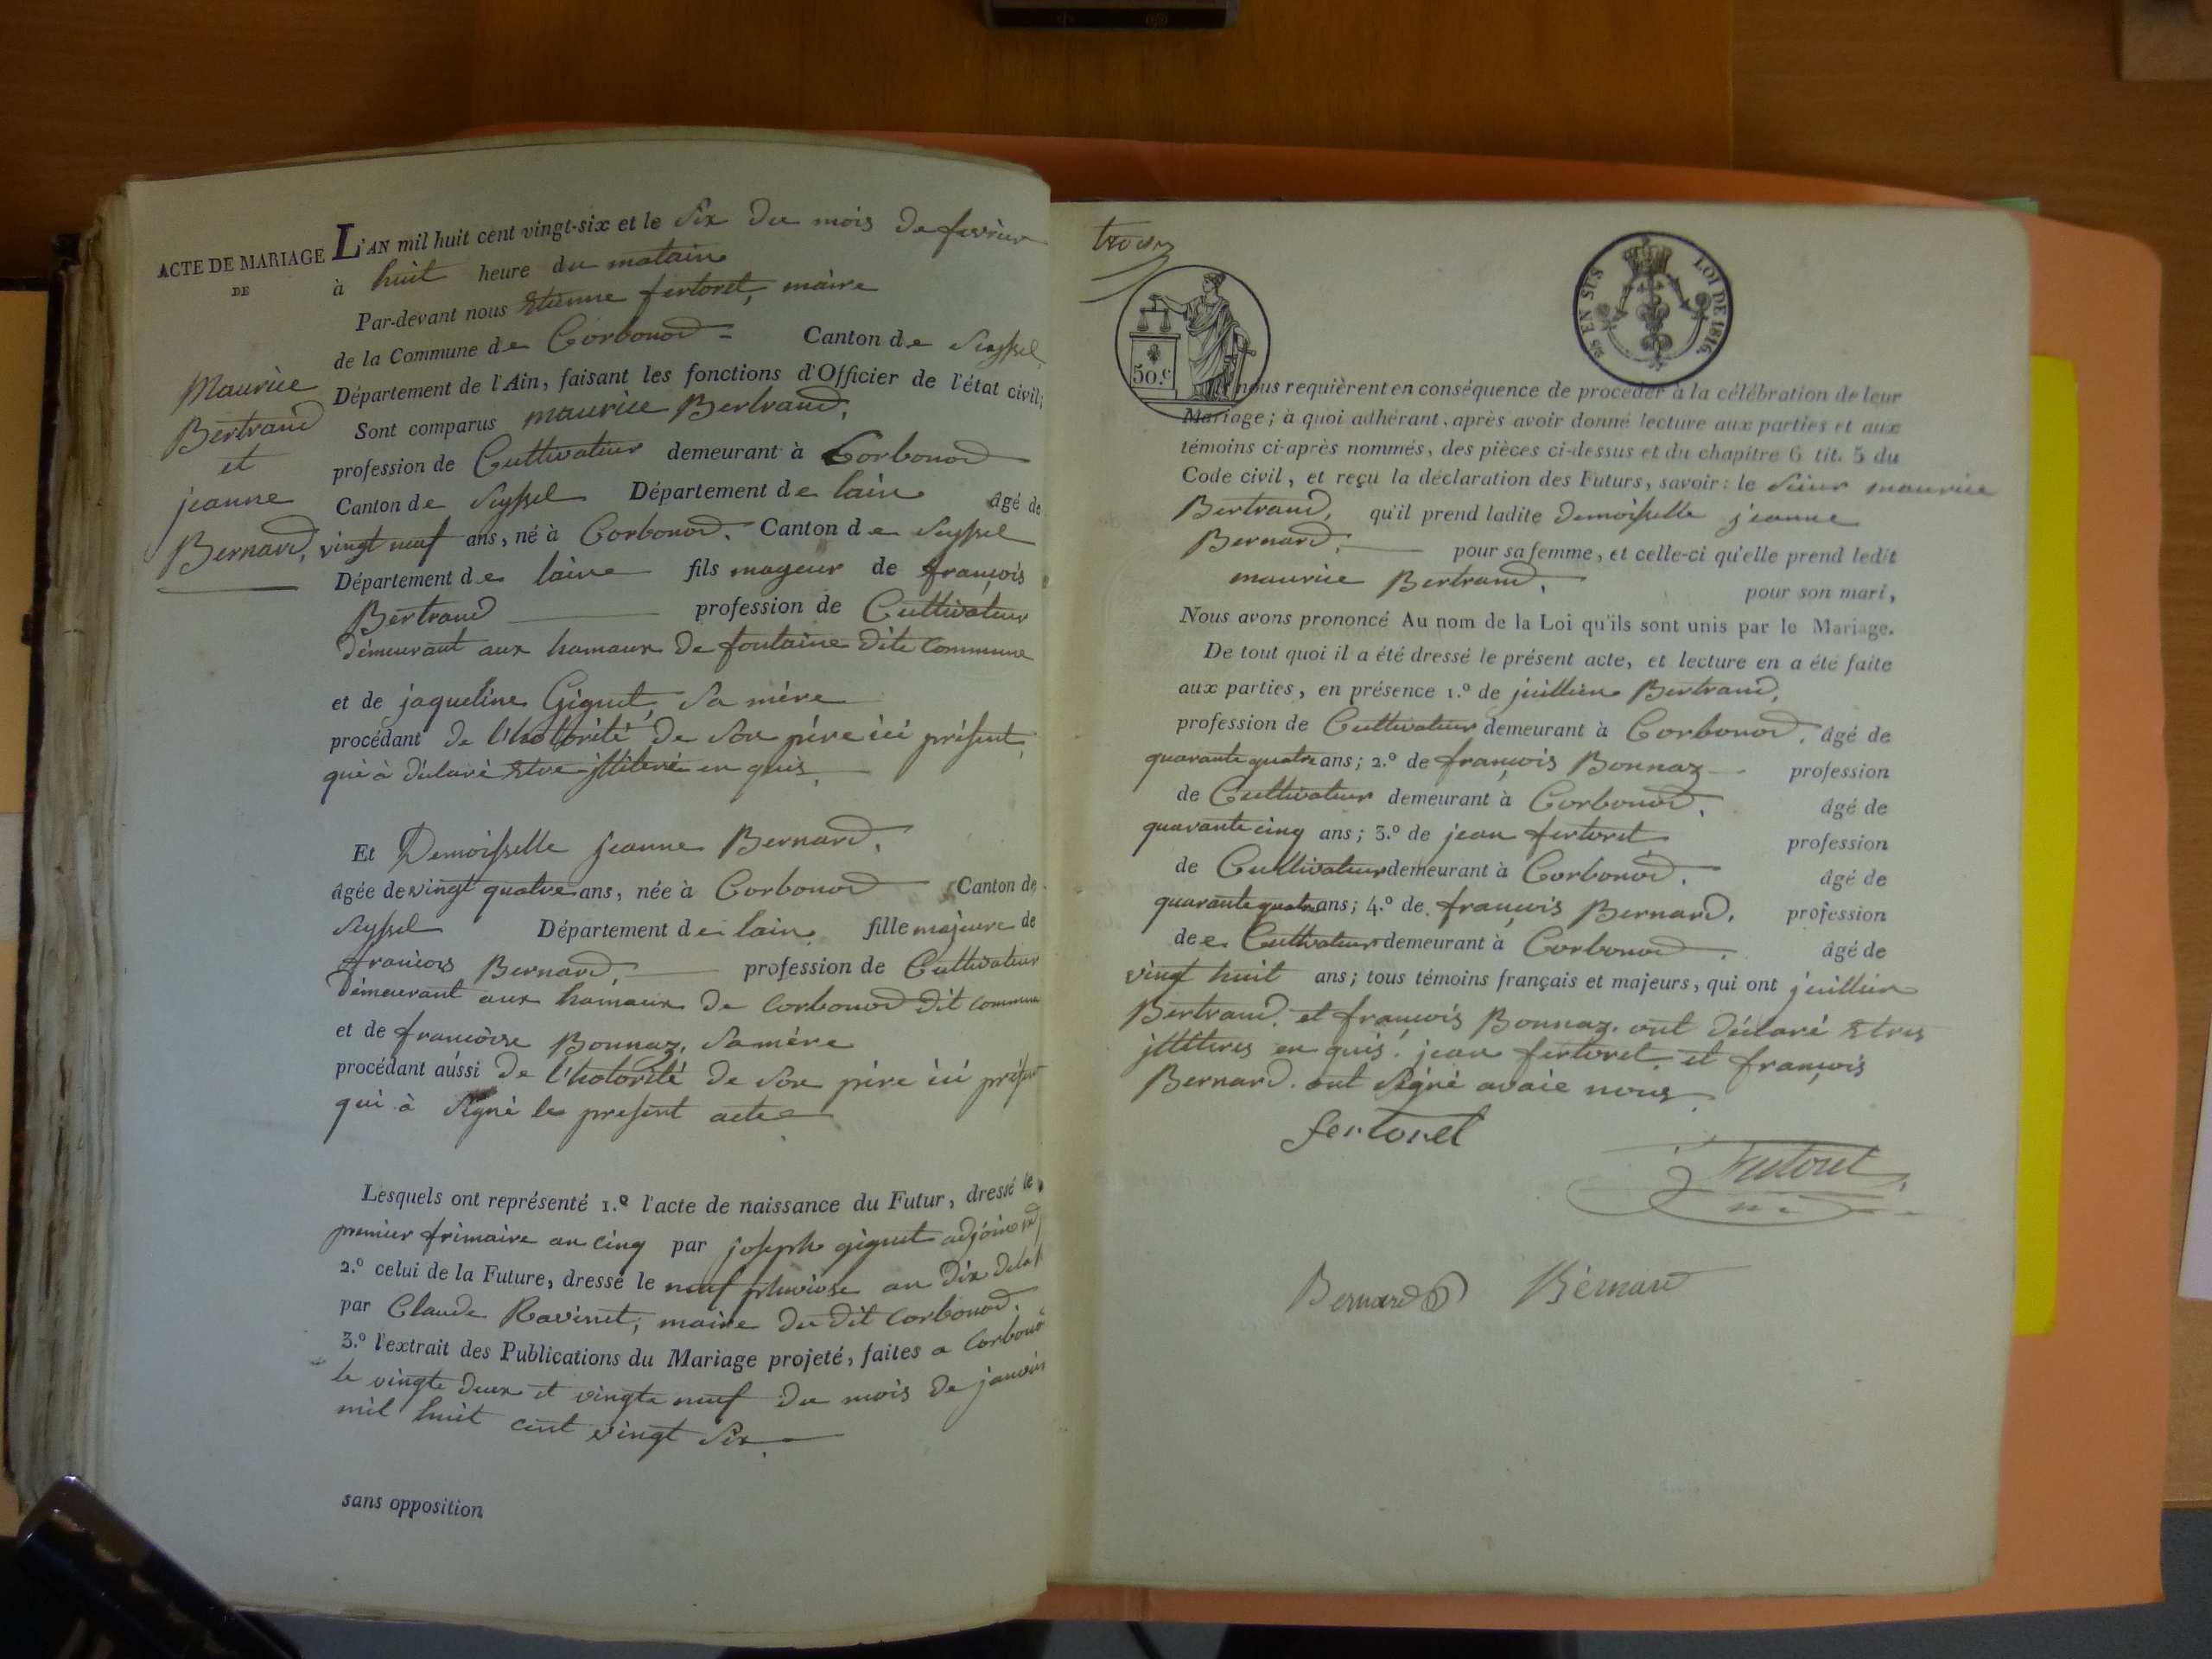 ACTE DE MARIAGE
DE
Maurice
Bertrand
et
jeanne
Bernard,
L'AN mil huit cent vingt-six et le Six du mois de fevrier
à huit heure du matain
Par-devant nous Etienne fertoret, maire
de la Commune de Corbonod = Canton de Seyssel
Département de l'Ain, faisant les fonctions d'Officier de l'état civil;
Sont comparus maurice Bertrand,
profession de Cultivateur demeurant à Corbonod
Canton de Seyssel Département de lain âgé de
vingt neuf ans, né à Corbonod. Canton de Seyssel
Département de laine fils mageur de françois
Bertrand profession de Cultivateur
démeurant aux hamaux de fontaine dite Commune
et de jaqueline Giguet, Sa mère
procédant de l'hotorité de Son père ici présent
qui à déclaré Etre illiteré en quis
Et Demoisselle jeanne Bernard,
âgée de vingt quatre ans, née à Corbonod Canton de
Seyssel Département de lain fille majeure de
françois Bernard, profession de Cultivateur
Démeurant aux hamaux de Corbonod dit commune
et de francoise Bonnaz, Sa mére
procédant aussi de l'hotorité de Son père ici présent
qui à Signé le present acte
Lesquels ont représenté 1.º l'acte de naissance du Futur, dressé le
premier frimaire an cinq par joseph giguet adjoint
2.º celui de la Future, dressé le neuf pluviose an dix
par Claude Ravinet, maire du dit Corbonod.
3.º l'extrait des Publications du Mariage projeté, faites a Corbonod
le vingte deux et vingte neuf du mois de janvier
mil huit cent vingt Six
sans opposition
50.c
EN SUS
LOI DE 1816.
nous requièrent en conséquence de procéder à la célébration de leur
Mariage; à quoi adhérant, après avoir donné lecture aux parties et aux
témoins ci-après nommés, des pièces ci-dessus et du chapitre 6 tit. 5 du
Code civil, et reçu la déclaration des Futurs, savoir: le Sieur maurice
Bertrand, qu'il prend ladite Demoisselle jeanne
Bernard, pour sa femme, et celle-ci qu'elle prend ledit
maurice Bertrand, pour son mari,
Nous avons prononcé Au nom de la Loi qu'ils sont unis par le Mariage.
De tout quoi il a été dressé le présent acte, et lecture en a été faite
aux parties, en présence 1.º de juillien Bertrand,
profession de Cultivateur demeurant à Corbonod, âgé de
quarante quatre ans; 2.º de françois Bonnaz profession
de Cultivateur demeurant à Corbonod. âgé de
quarante cinq ans; 3.º de jean fertoret profession
de Cultivateur demeurant à Corbonod. âgé de
quarante quatre ans; 4.º de françois Bernard, profession
de Cultivateur demeurant à Corbonod. âgé de
vingt huit ans; tous témoins français et majeurs, qui ont juillien
Bertrand. et françois Bonnaz. ont déclaré Etres
illiteres en quis. jean fertoret et françois
Bernard. ont Signé avaic nous
fertoret
Fertoret
Bernard Bernard